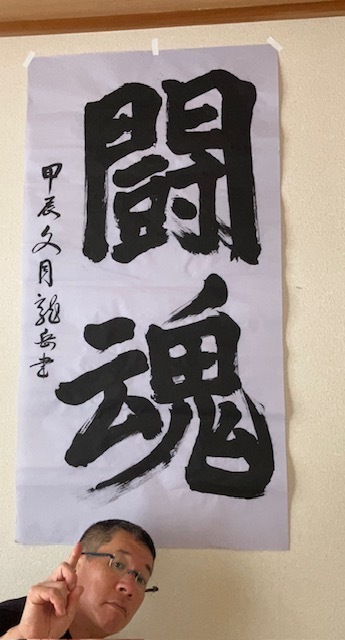 闘魂
甲辰文月龍岳書